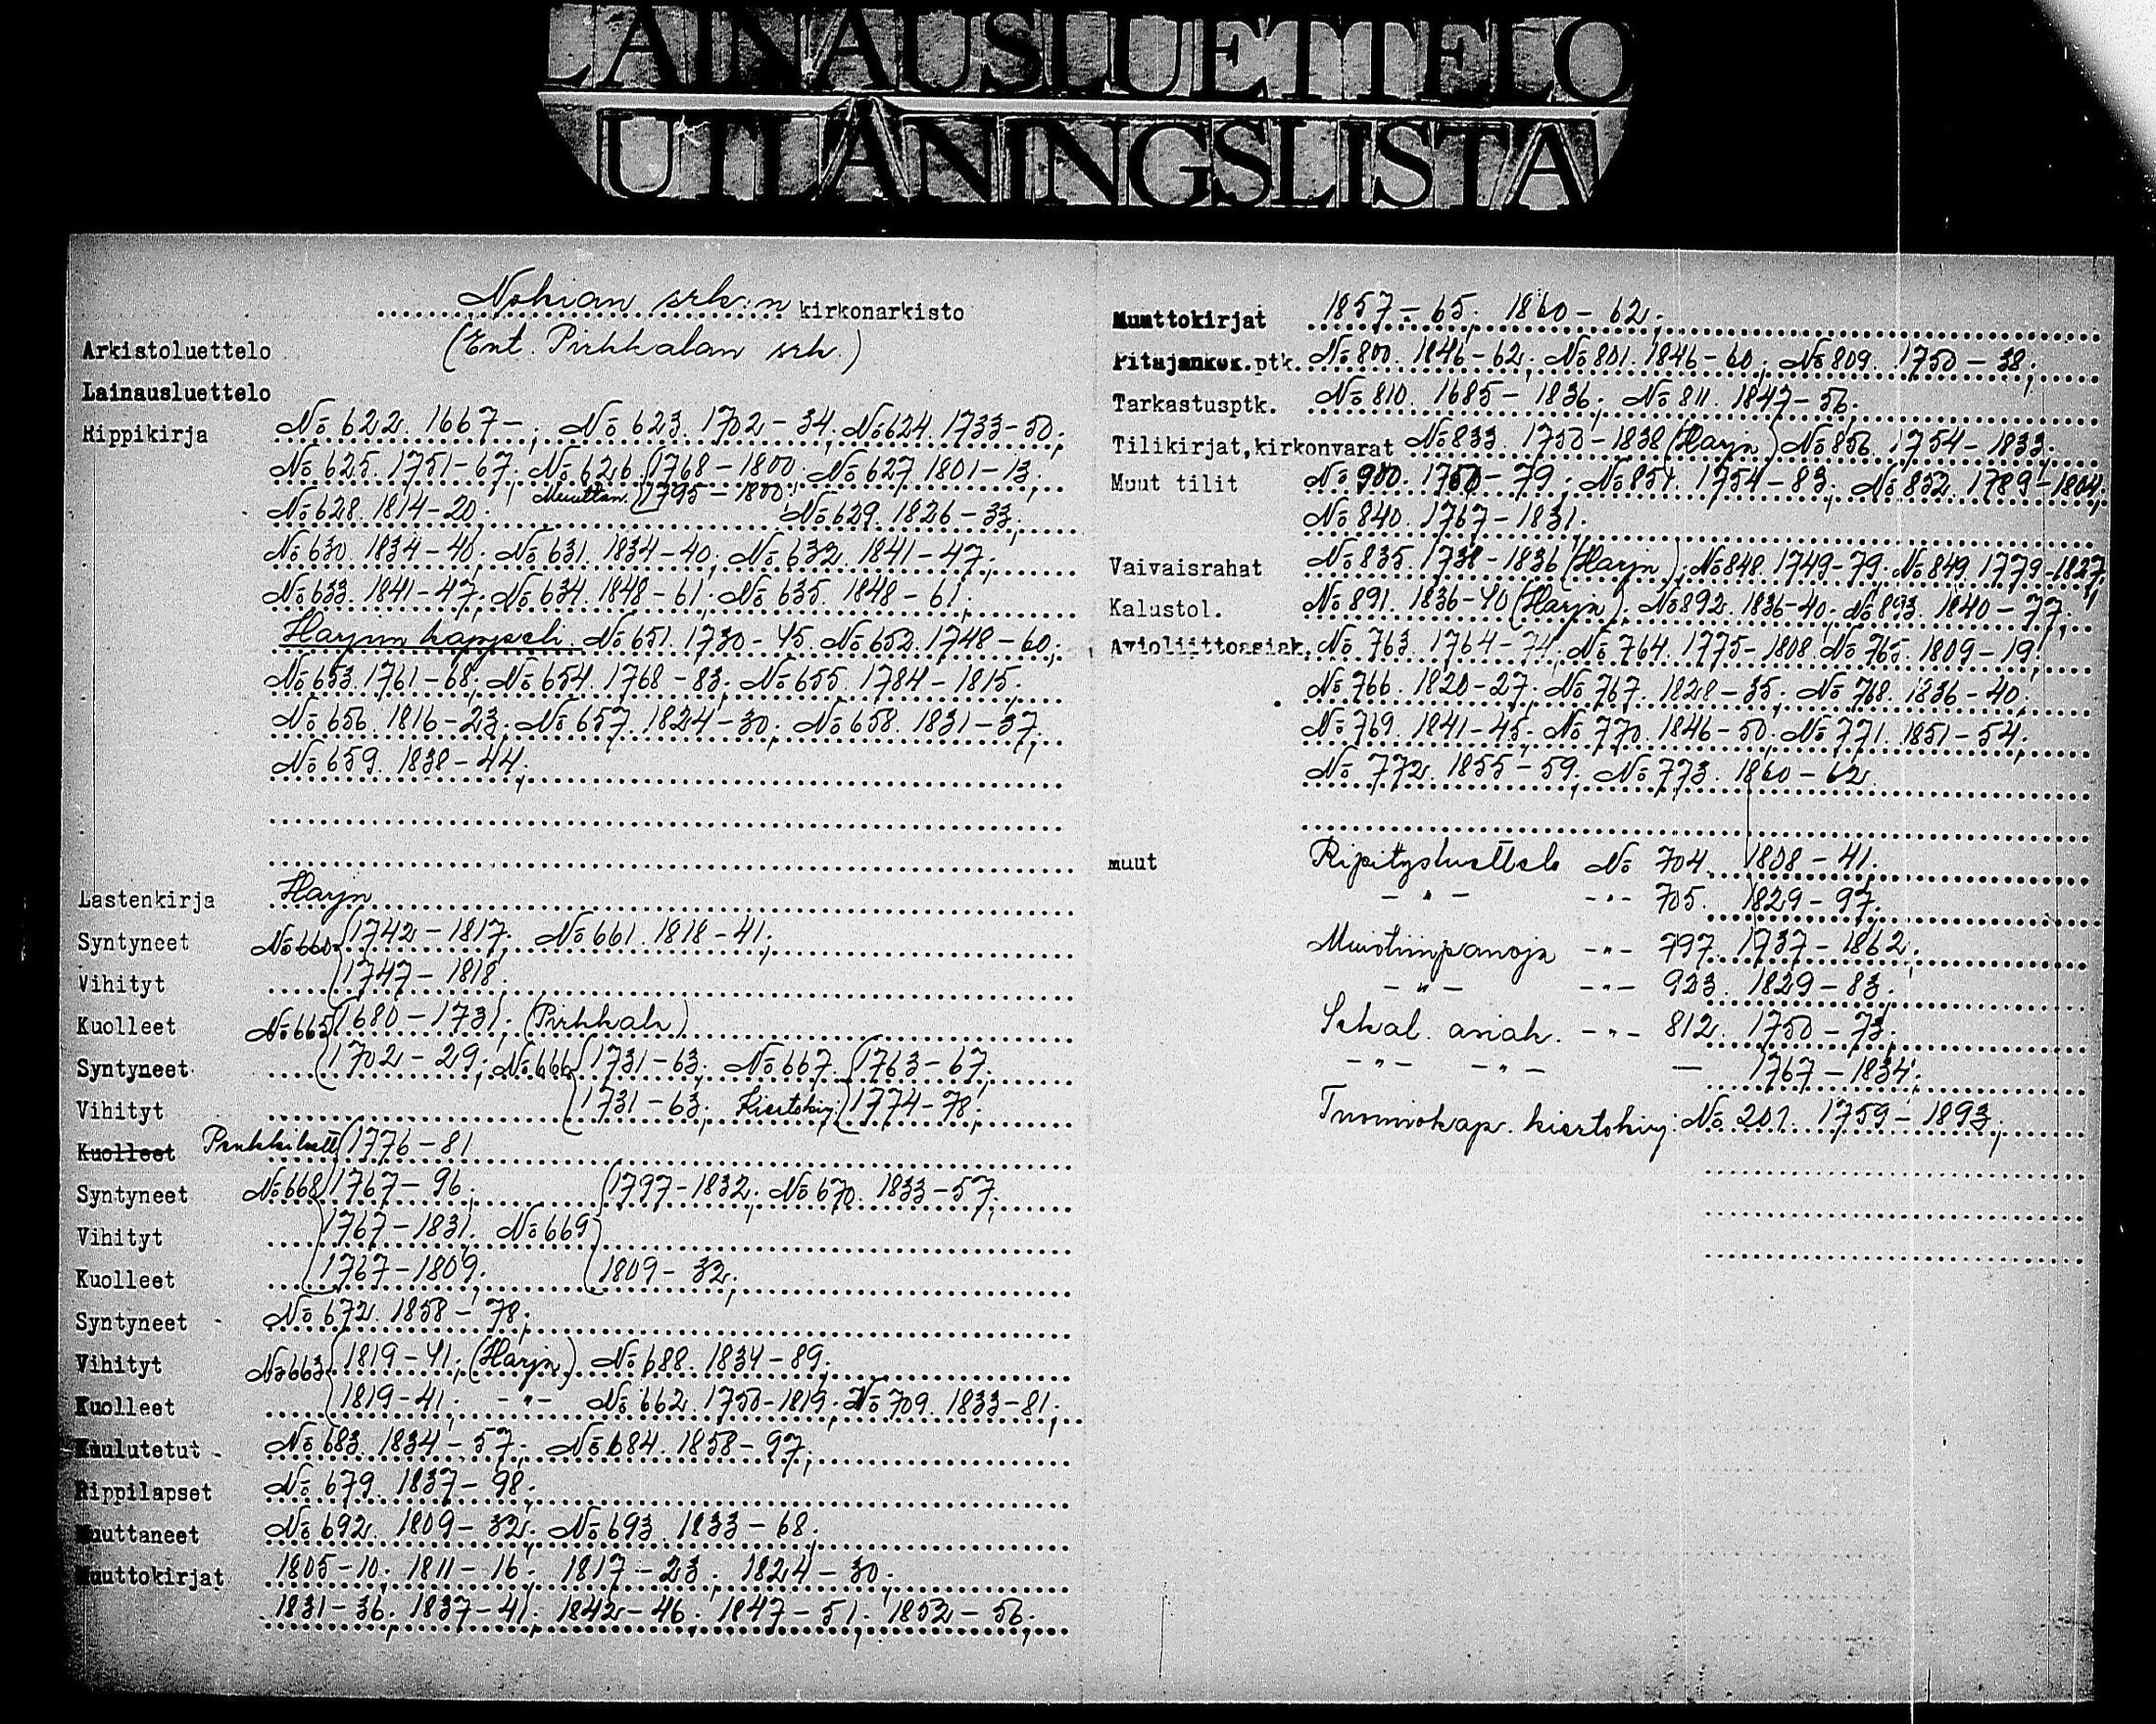 LAINAUSLUETTELO
UTLÅNINGSLISTA
Nokian srk:n kirkonarkisto
Arkistoluettelo (Ent. Pirkkalan srk.)
Lainausluettelo
Rippikirja No 622. 1667-; No 623. 1702-34; No 624. 1733-50;
No 625. 1751-67; No 626. 1768-1800; No 627. 1801-13;
Muuttan. 1795-1800;
No 628. 1814-20; No 629. 1826-33;
No 630. 1834-40; No 631. 1834-40; No 632. 1841-47;
No 633. 1841-47; No 634. 1848-61; No 635. 1848-61;
Harjun kappeli: No 651. 1730-45. No 652. 1748-60;
No 653. 1761-68; No 654. 1768-83; No 655. 1784-1815;
No 656. 1816-23; No 657. 1824-30; No 658. 1831-37;
No 659. 1838-44;
Lastenkirja Harju
Syntyneet No 660 1742-1817; No 661. 1818-41;
Vihityt 1747-1818;
Kuolleet No 665 1680-1731; (Pirkkala)
Syntyneet 1702-29; No 666 1731-63; No 667. 1763-67;
Vihityt 1731-63; Kiertokirj: 1774-78;
Kuolleet Penkkiluett 1776-81
Syntyneet No 668 1767-96; 1797-1832; No 670. 1833-57;
Vihityt 1767-1831. No 669
Kuolleet 1767-1809; 1809-32;
Syntyneet - No 672. 1858-78;
Vihityt No 663 1819-41; (Harju) No 688. 1834-89;
Kuolleet 1819-41; -"- No 662. 1750-1819; No 709. 1833-81;
Kuulutetut - No 683. 1834-57; No 684. 1858-97;
Rippilapset No 679. 1837-98;
Muuttaneet No 692. 1809-32; No 693. 1833-68;
Muuttokirjat 1805-10; 1811-16; 1817-23; 1824-30;
1831-36; 1837-41; 1842-46; 1847-51; 1852-56;
Muuttokirjat 1857-65; 1860-62;
Pitäjänkok.ptk. No 800. 1846-62; No 801. 1846-60; No 809. 1750-38;
Tarkastusptk. No 810. 1685-1836; No 811. 1847-56;
Tilikirjat,kirkonvarat No 833. 1750-1838 (Harju) No 856. 1754-1833;
Muut tilit No 900. 1750-79; No 851. 1754-83; No 852. 1789-1804;
No 840. 1767-1831;
Vaivaisrahat No 835. 1738-1836 (Harju); No 848. 1749-79. No 849. 1779-1827;
Kalustol. No 891. 1836-40 (Harju). No 892. 1836-40; No 893. 1840-77;
Avioliittoasiak. No 763. 1764-74; No 764. 1775-1808. No 765. 1809-19;
No 766. 1820-27; No 767. 1828-35; No 768. 1836-40;
No 769. 1841-45; No 770. 1846-50; No 771. 1851-54;
No 772. 1855-59; No 773. 1860-62.
muut Ripitysluettelo No 704. 1808-41;
-"- -"- 705. 1829-97.
Muistiinpanoja -"- 797. 1737-1862;
-"- -"- 923. 1829-83;
Sekal. asiak. -"- 812. 1750-73;
-"- -"- — 1767-1834;
Tuomiokap. kiertokirj: No 201. 1759-1893;